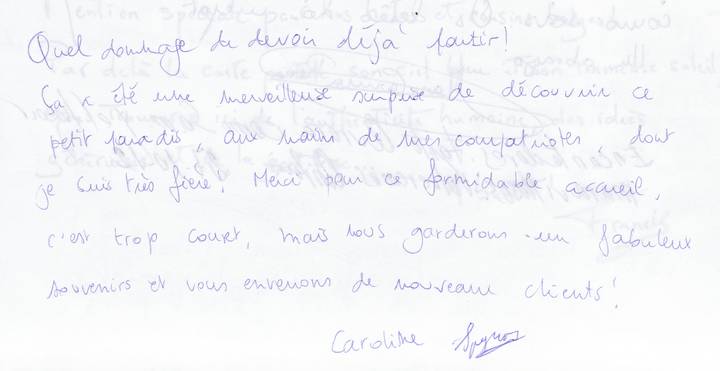 Quel dommage de devoir déjà partir!
Ça a été une merveilleuse surprise de découvrir ce
petit paradis, aux mains de mes compatriotes, dont
je suis très fière! Merci pour ce formidable accueil,
c'est trop court, mais nous garderons un fabuleux
souvenirs et vous enverrons de nouveaux clients!
Caroline